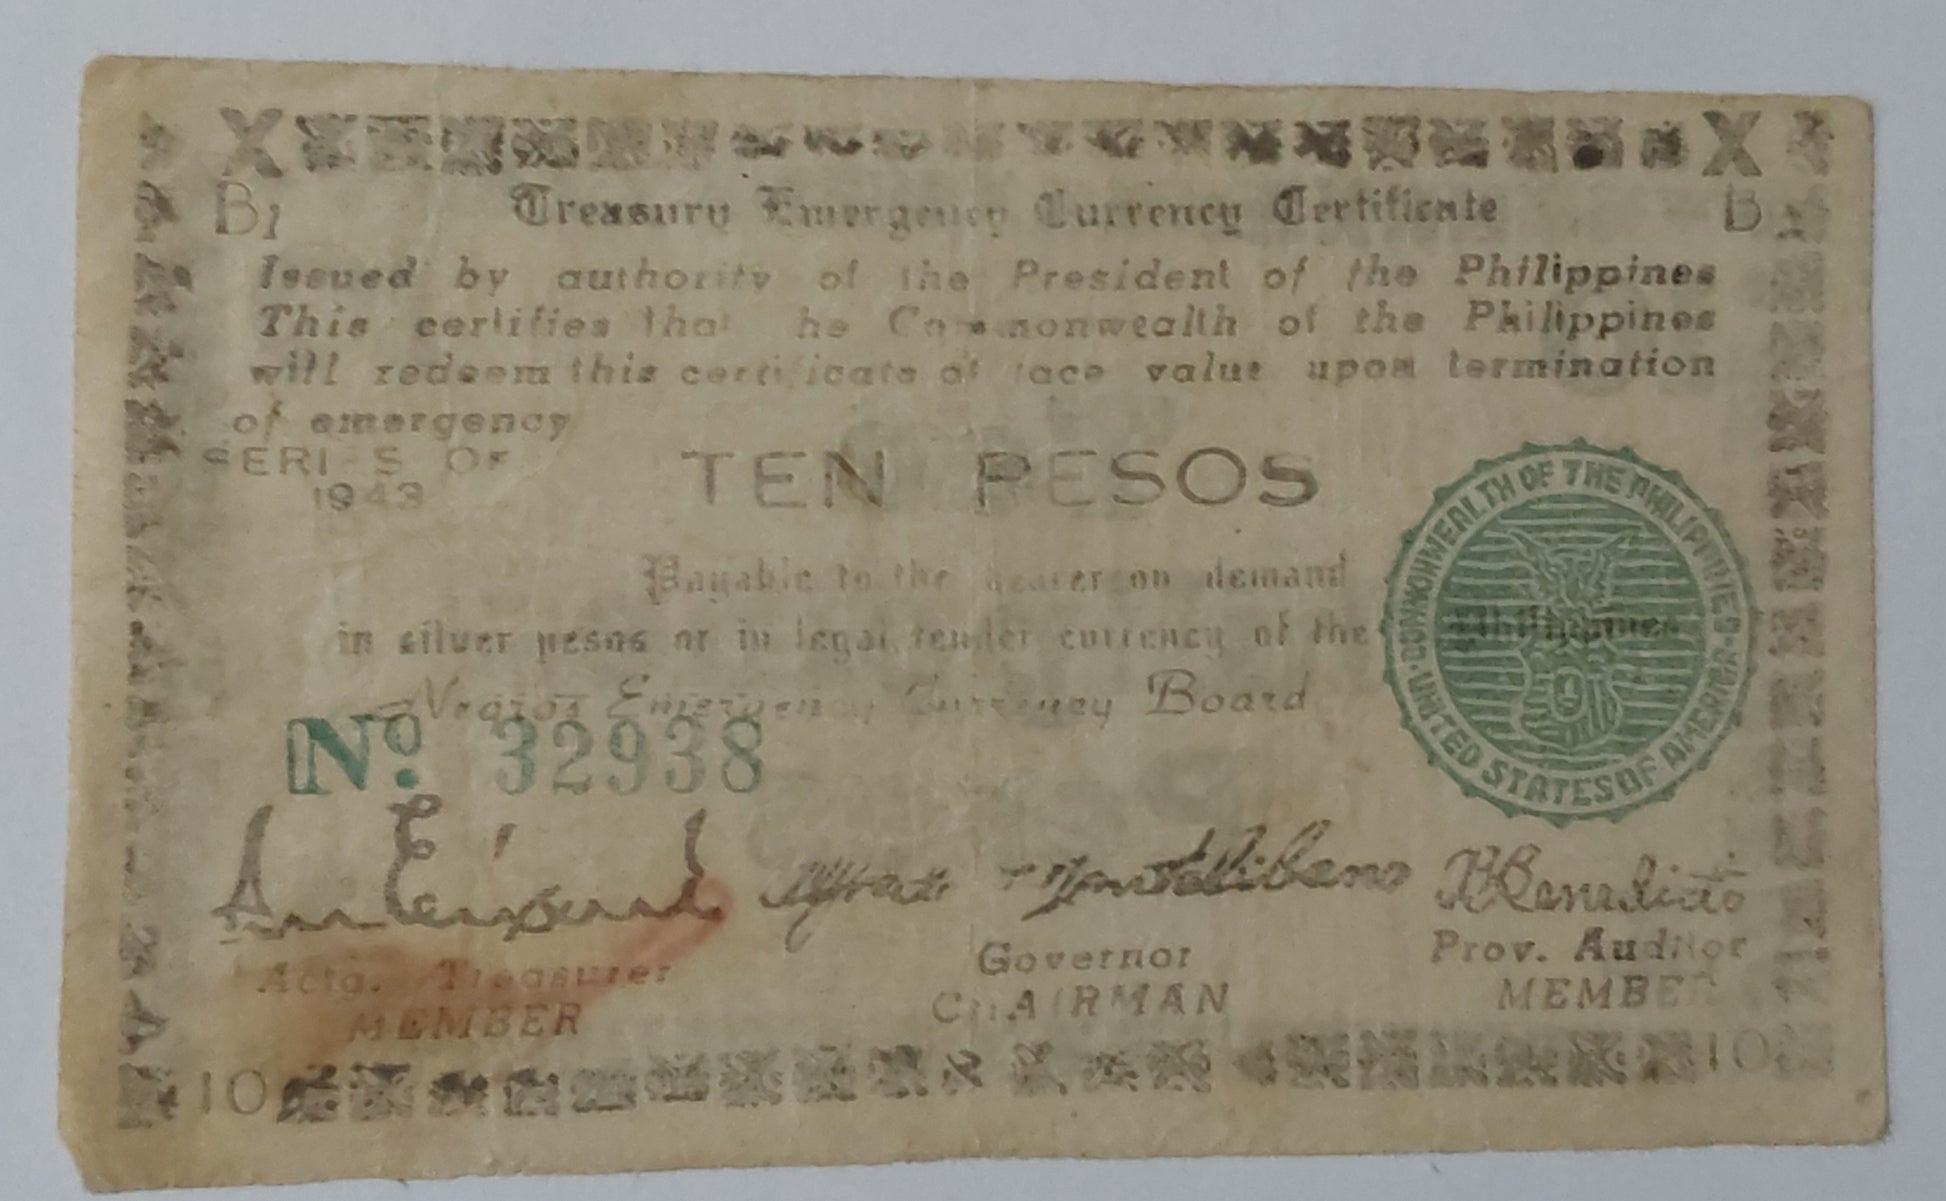 X X
B1 Treasury Emergency Currency Certificate B
Issued by authority of the President of the Philippines
This certifies that he Commonwealth of the Philippines
will redeem this certificate at face value upon termination
of emergency
SERIES OF
1943
TEN PESOS
Payable to the bearer on demand
in silver pesos or in legal tender currency of the Philippines
Negros Emergency Currency Board
No. 32938
COMMONWEALTH OF THE PHILIPPINES
UNITED STATES OF AMERICA
Benedicto
Actg. Treasurer
MEMBER
Governor
CHAIRMAN
Prov. Auditor
MEMBER
10 10